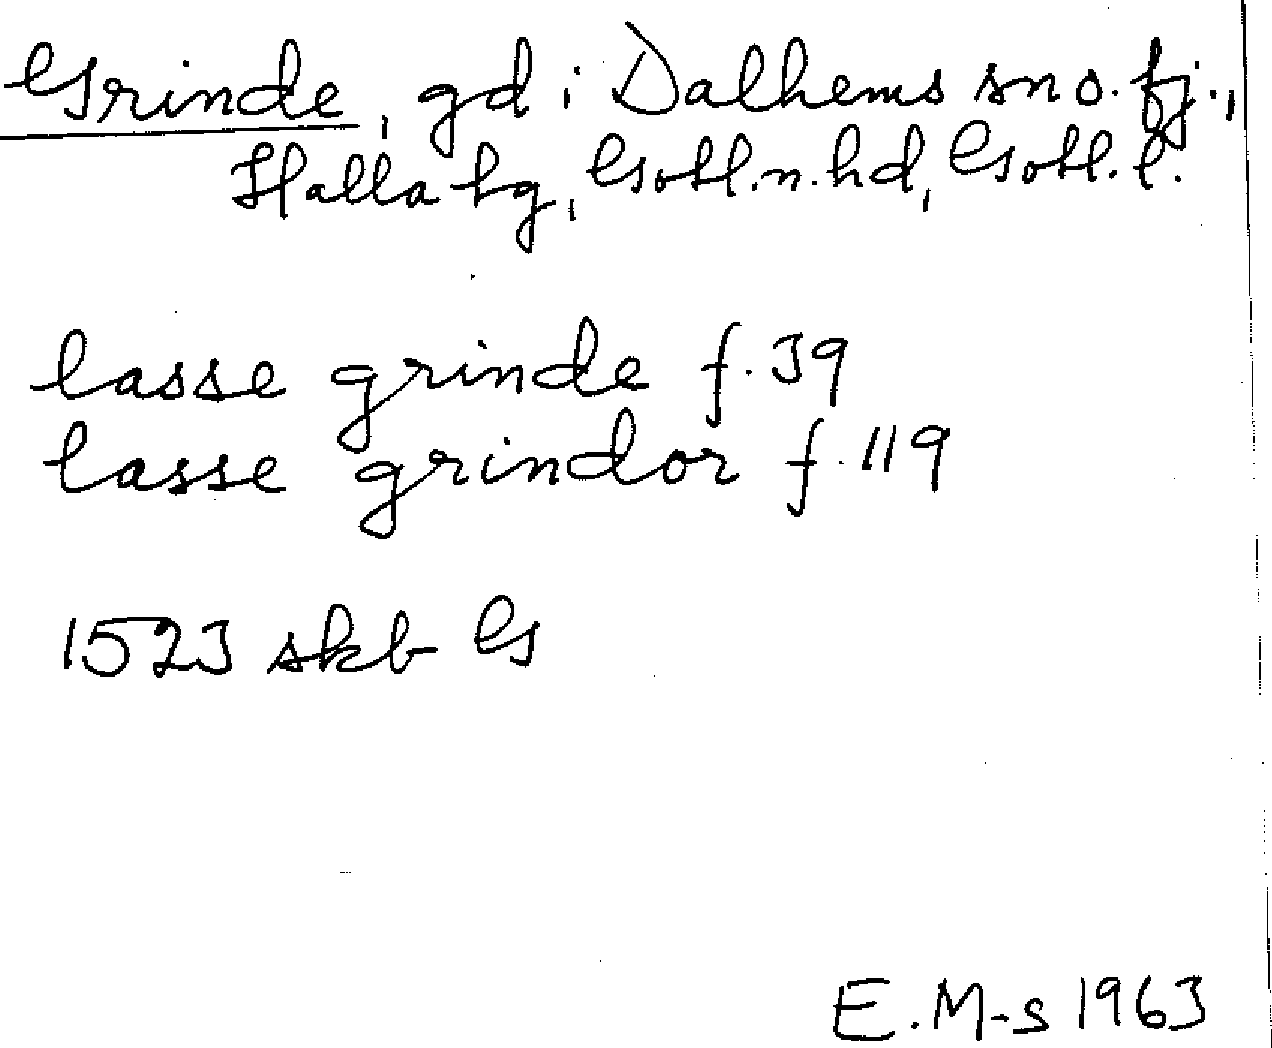 Grinde, gd i Dalhems sn o. tj.,
Halla tg, Gotl. n. hd, Gotl. l.
lasse grinde f. 39
lasse grindor f. 119
1523 skb G
E. M-s 1963